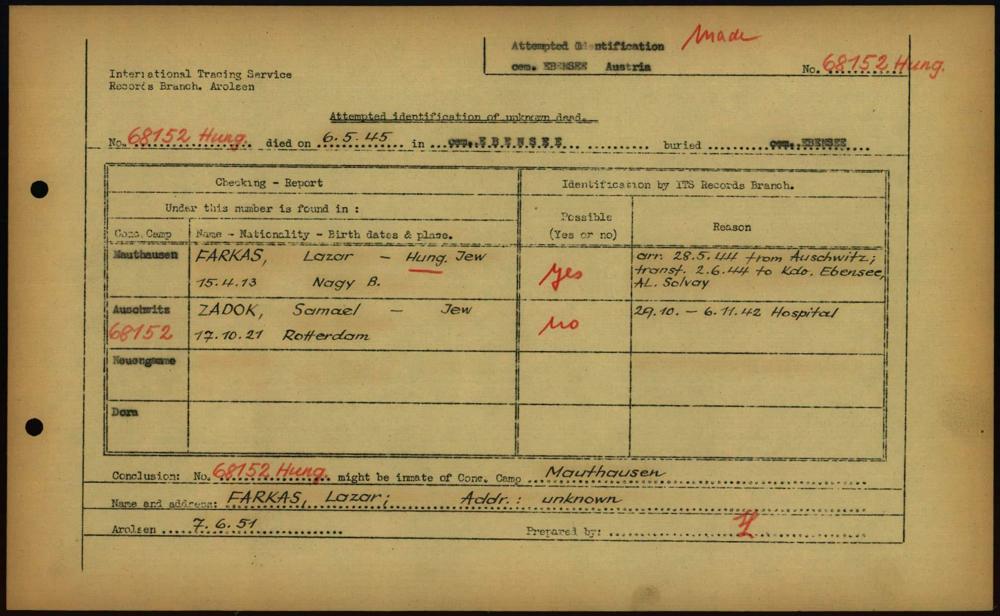 Attempted Identification Made
cem. EBENSEE Austria No. 68152 Hung.
International Tracing Service
Records Branch. Arolsen
Attempted identification of unknown dead.
No. 68152 Hung. died on 6.5.45 in cem. EBENSEE buried cem. EBENSEE
Checking - Report Identification by ITS Records Branch.
Under this number is found in :
Conc. Camp Name - Nationality - Birth dates & place. Possible (Yes or no) Reason
Mauthausen FARKAS, Lazar - Hung. Jew yes arr. 28.5.44 from Auschwitz;
15.4.13 Nagy B. transf. 2.6.44 to Kdo. Ebensee,
AL. Solvay
Auschwitz ZADOK, Samael - Jew no 29.10. - 6.11.42 Hospital
68152 17.10.21 Rotterdam
Neuengamme
Dora
Conclusion: No. 68152 Hung. might be inmate of Conc. Camp Mauthausen
Name and address: FARKAS, Lazar; Addr.: unknown
Arolsen 7.6.51 Prepared by: